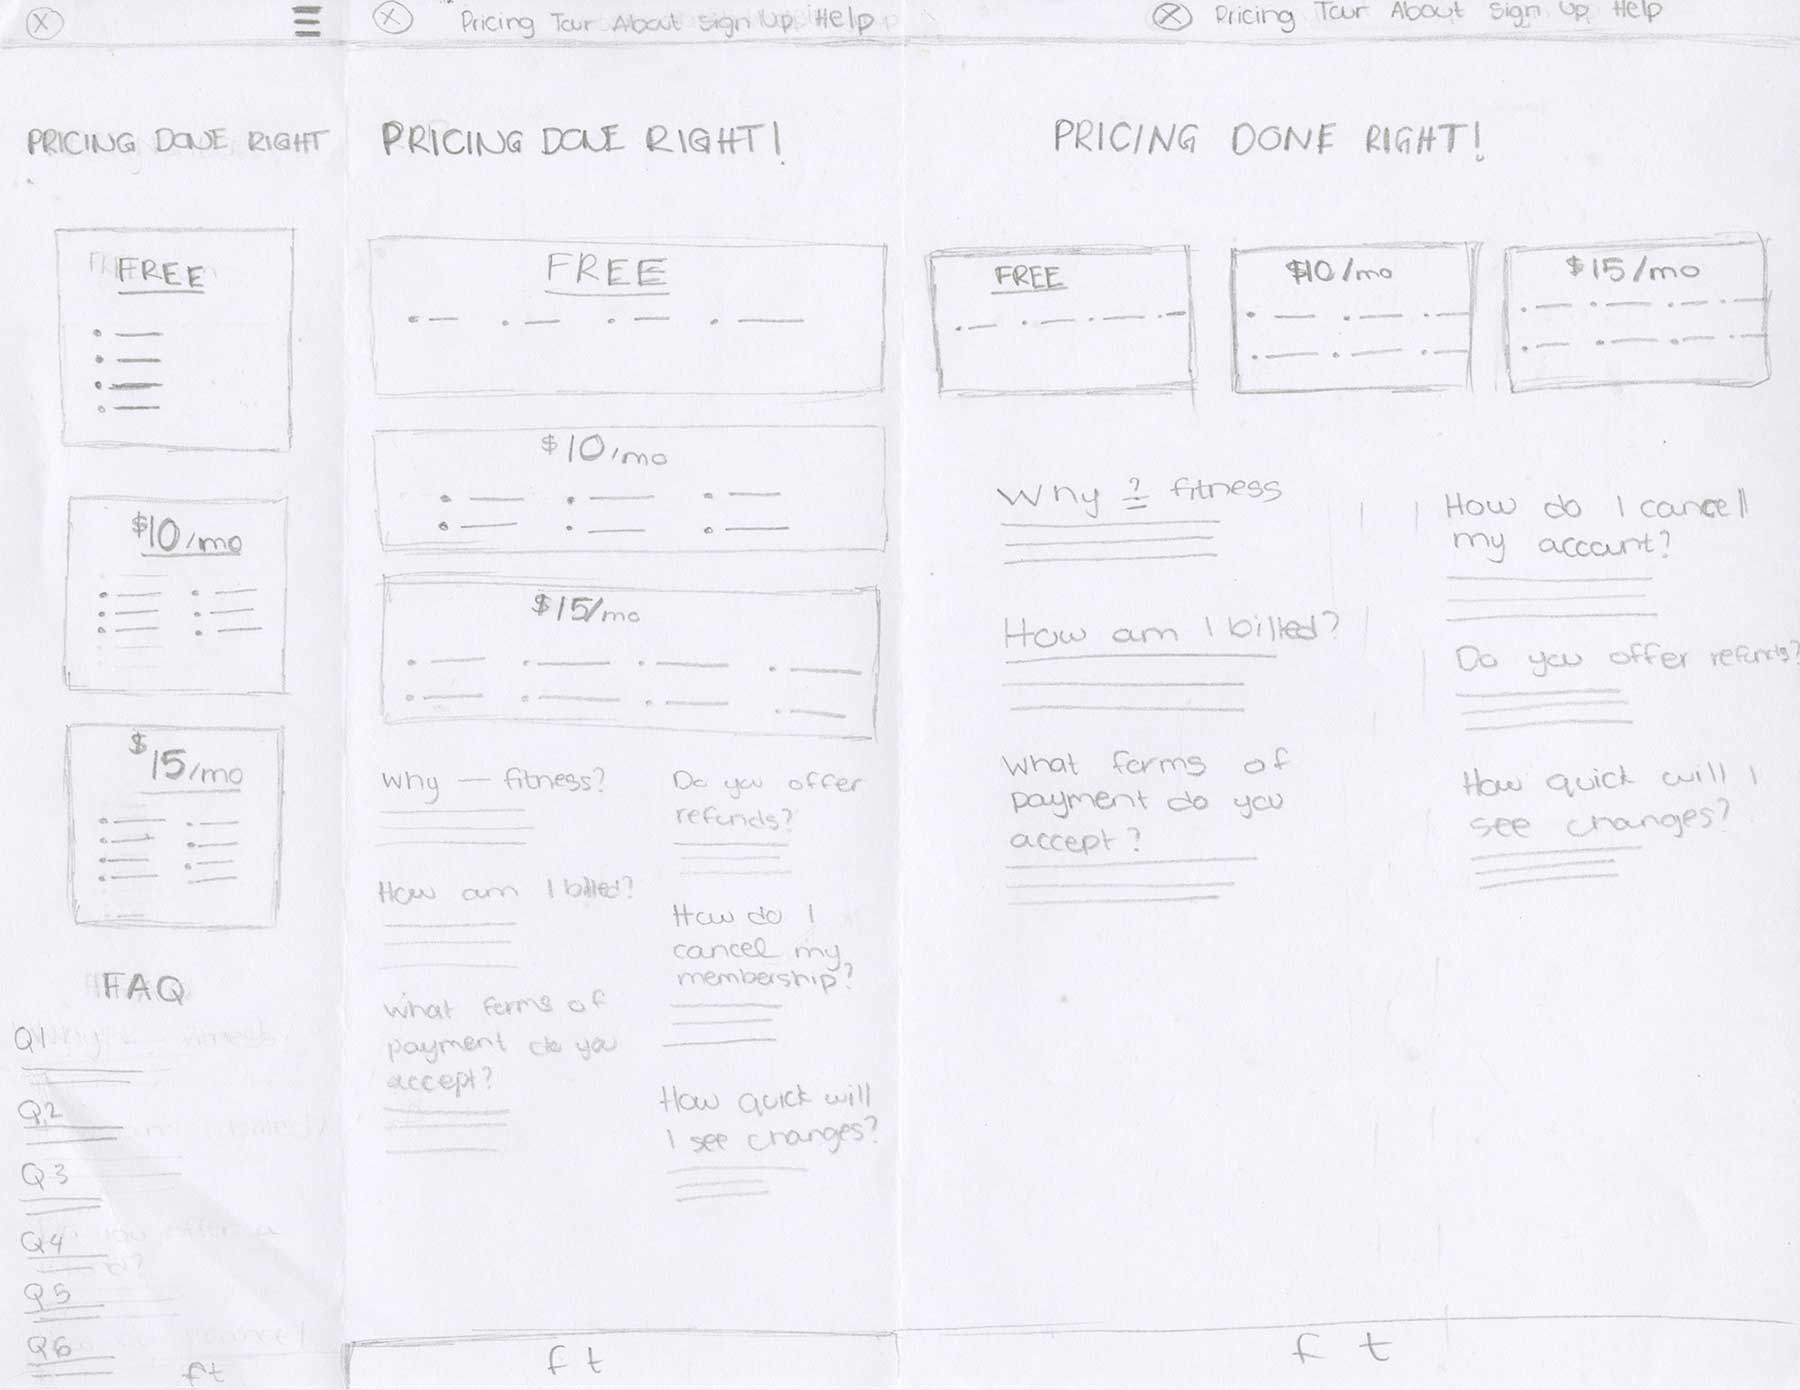 X
PRICING DONE RIGHT
FREE
$10/mo
$15/mo
FAQ
Q1
Q2
Q3
Q4
Q5
Q6
f t
X Pricing Tour About Sign Up Help
PRICING DONE RIGHT!
FREE
$10/mo
$15/mo
Why — fitness?
How am I billed?
What forms of
payment do you
accept?
Do you offer
refunds?
How do I
cancel my
membership?
How quick will
I see changes?
f t
X Pricing Tour About Sign Up Help
PRICING DONE RIGHT!
FREE
$10/mo
$15/mo
Why ? fitness
How am I billed?
What forms of
payment do you
accept?
How do I cancell
my account?
Do you offer refunds?
How quick will I
see changes?
f t